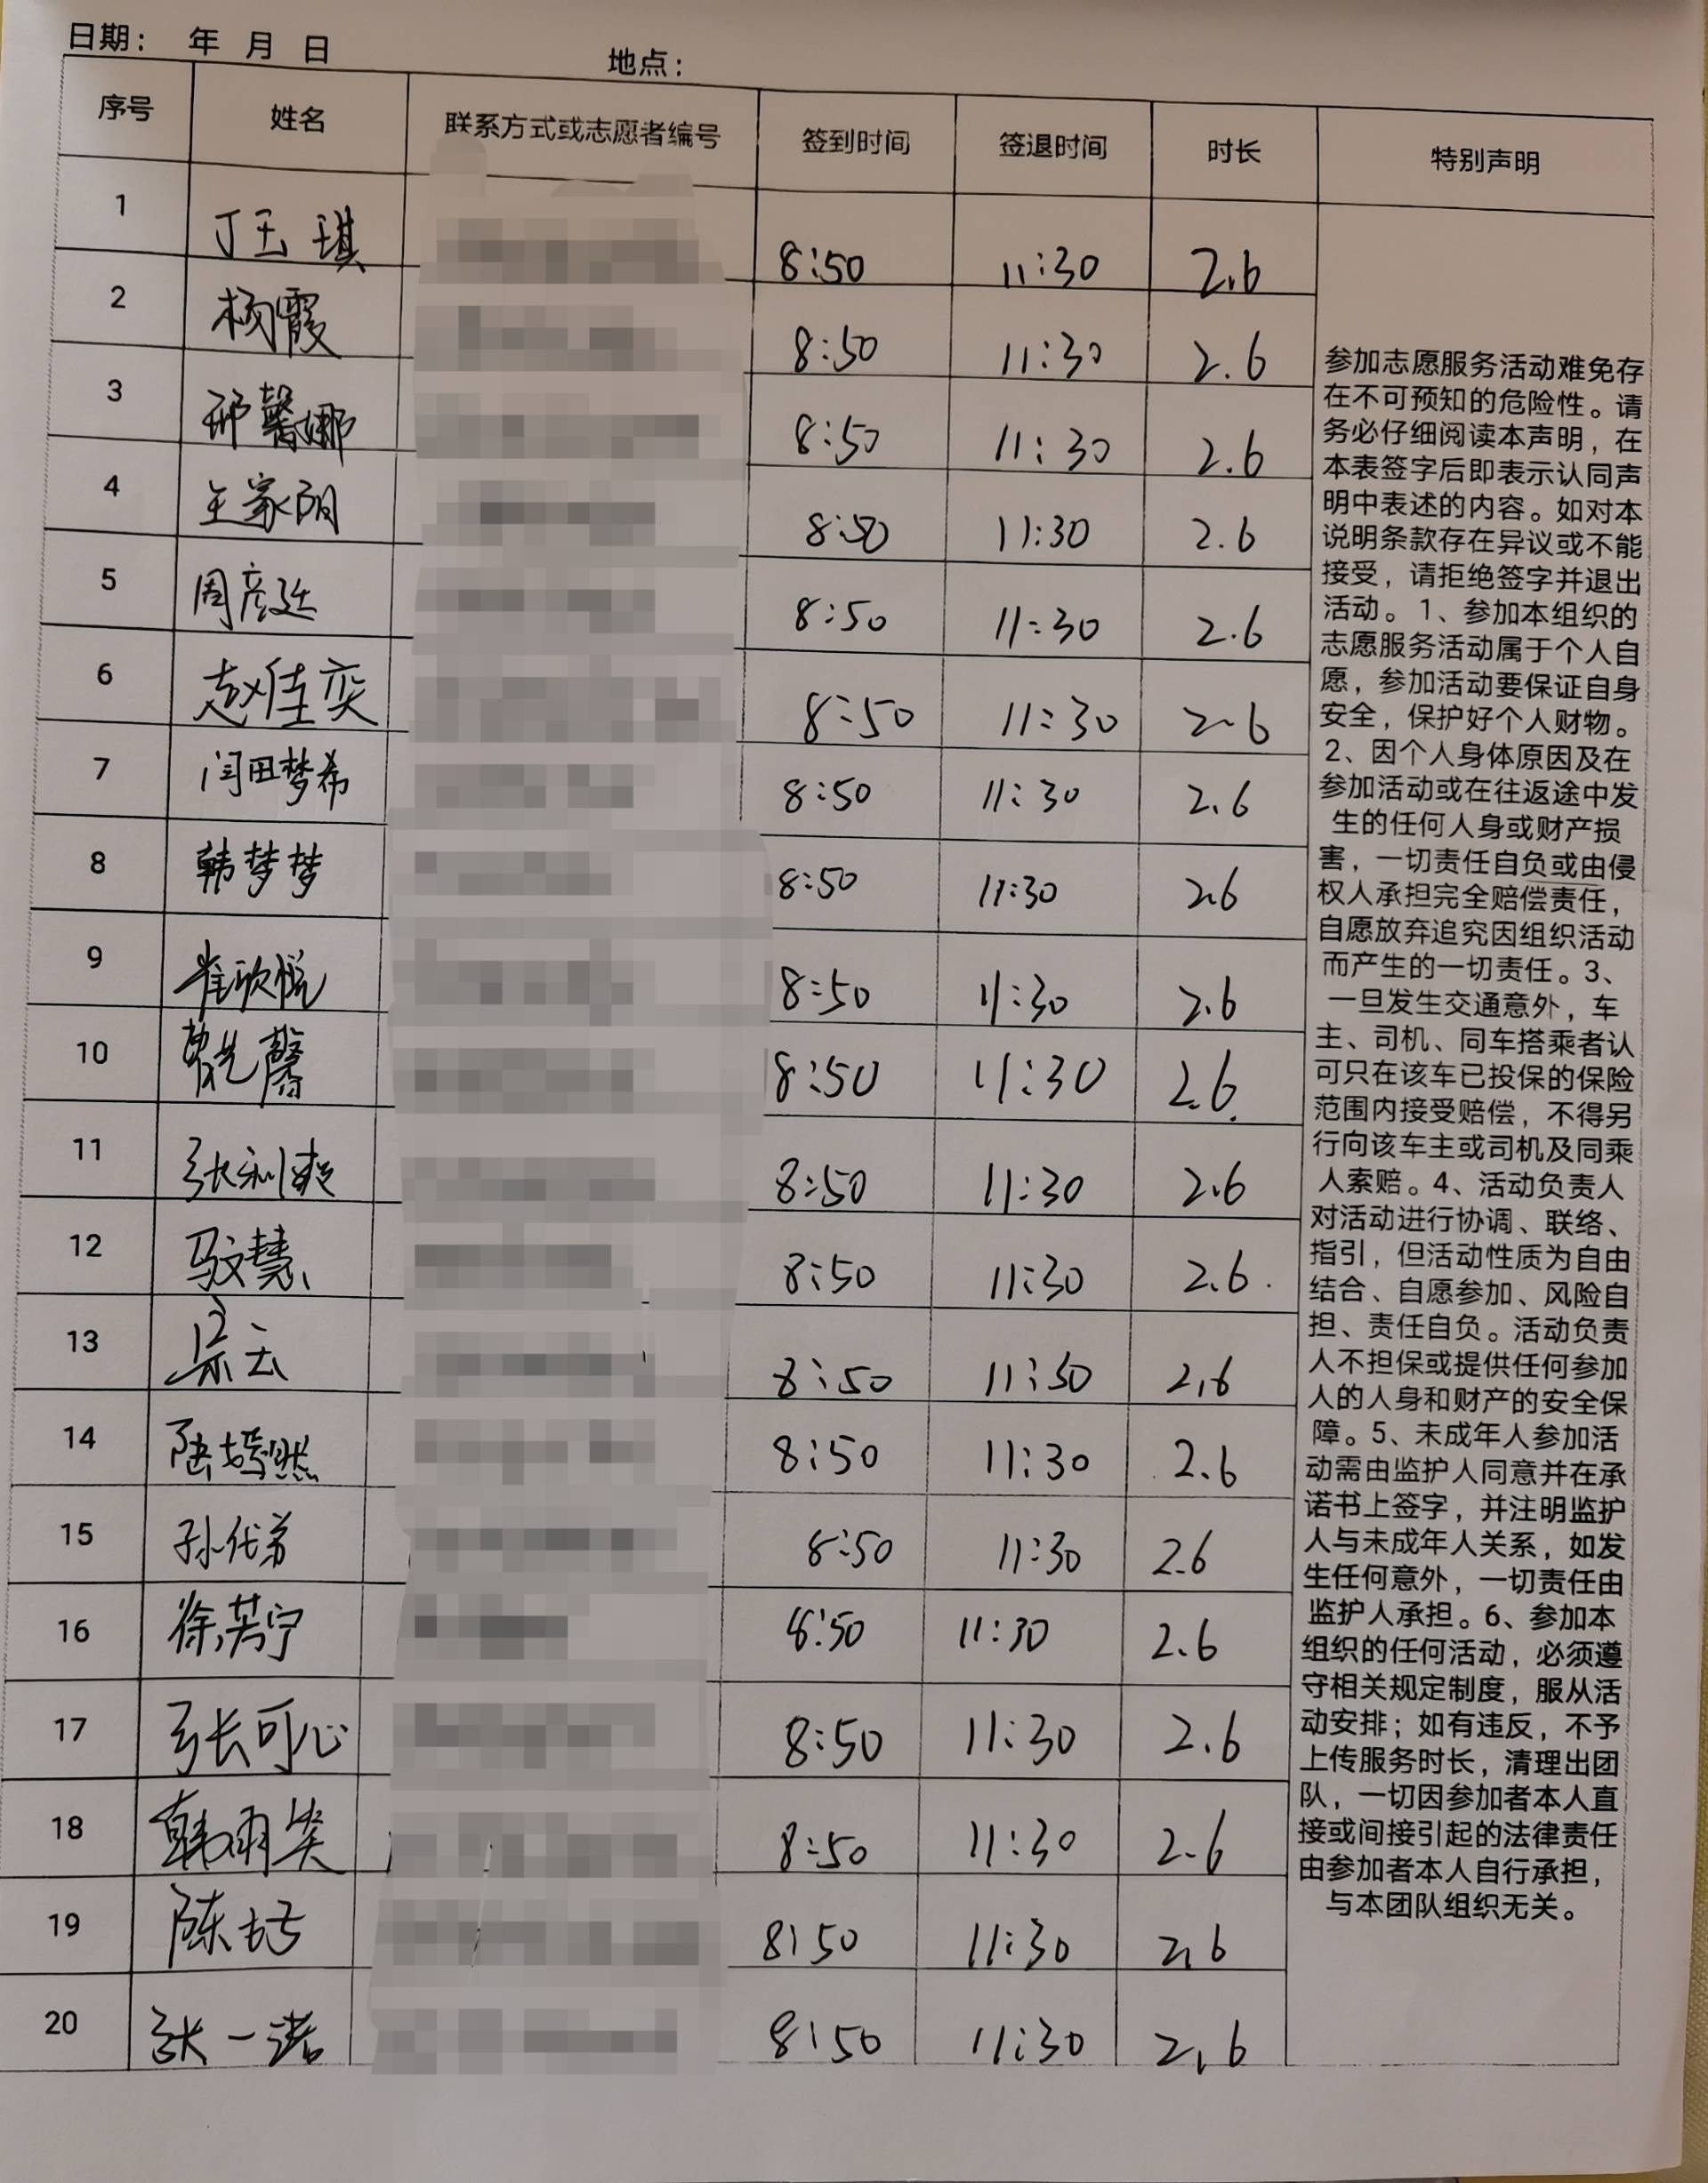 日期： 年 月 日 地点：
序号 姓名 联系方式或志愿者编号 签到时间 签退时间 时长 特别声明
1 丁玉琪 8:50 11:30 2.6
2 杨霞 8:50 11:30 2.6
3 邢馨娜 8:50 11:30 2.6
4 王家阴 8:50 11:30 2.6
5 周彦廷 8:50 11:30 2.6
6 赵佳奕 8:50 11:30 2.6
7 闫田梦希 8:50 11:30 2.6
8 韩梦梦 8:50 11:30 2.6
9 崔欣悦 8:50 11:30 2.6
10 馨 8:50 11:30 2.6
11 张利爽 8:50 11:30 2.6
12 马文慧 8:50 11:30 2.6
13 云 8:50 11:50 2.6
14 陆嫣然 8:50 11:30 2.6
15 孙代弟 8:50 11:30 2.6
16 徐芳宁 8:50 11:30 2.6
17 张可心 8:50 11:30 2.6
18 韩雨笑 8:50 11:30 2.6
19 陈 8:50 11:30 2.6
20 张一诺 8:50 11:30 2.6
参加志愿服务活动难免存
在不可预知的危险性。请
务必仔细阅读本声明，在
本表签字后即表示认同声
明中表述的内容。如对本
说明条款存在异议或不能
接受，请拒绝签字并退出
活动。1、参加本组织的
志愿服务活动属于个人自
愿，参加活动要保证自身
安全，保护好个人财物。
2、因个人身体原因及在
参加活动或在往返途中发
生的任何人身或财产损
害，一切责任自负或由侵
权人承担完全赔偿责任，
自愿放弃追究因组织活动
而产生的一切责任。3、
一旦发生交通意外，车
主、司机、同车搭乘者认
可只在该车已投保的保险
范围内接受赔偿，不得另
行向该车主或司机及同乘
人索赔。4、活动负责人
对活动进行协调、联络、
指引，但活动性质为自由
结合、自愿参加、风险自
担、责任自负。活动负责
人不担保或提供任何参加
人的人身和财产的安全保
障。5、未成年人参加活
动需由监护人同意并在承
诺书上签字，并注明监护
人与未成年人关系，如发
生任何意外，一切责任由
监护人承担。6、参加本
组织的任何活动，必须遵
守相关规定制度，服从活
动安排；如有违反，不予
上传服务时长，清理出团
队，一切因参加者本人直
接或间接引起的法律责任
由参加者本人自行承担，
与本团队组织无关。